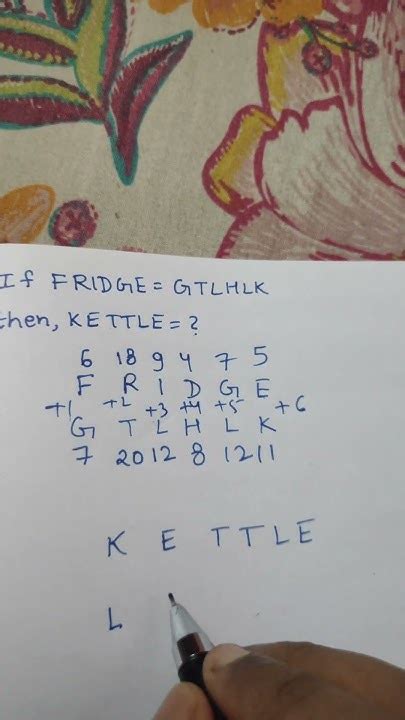 If FRIDGE = GTLHLK
then, KETTLE = ?
6 18 9 4 7 5
F R I D G E
+1 +2 +3 +4 +5 +6
G T L H L K
7 20 12 8 12 11
K E T T L E
L